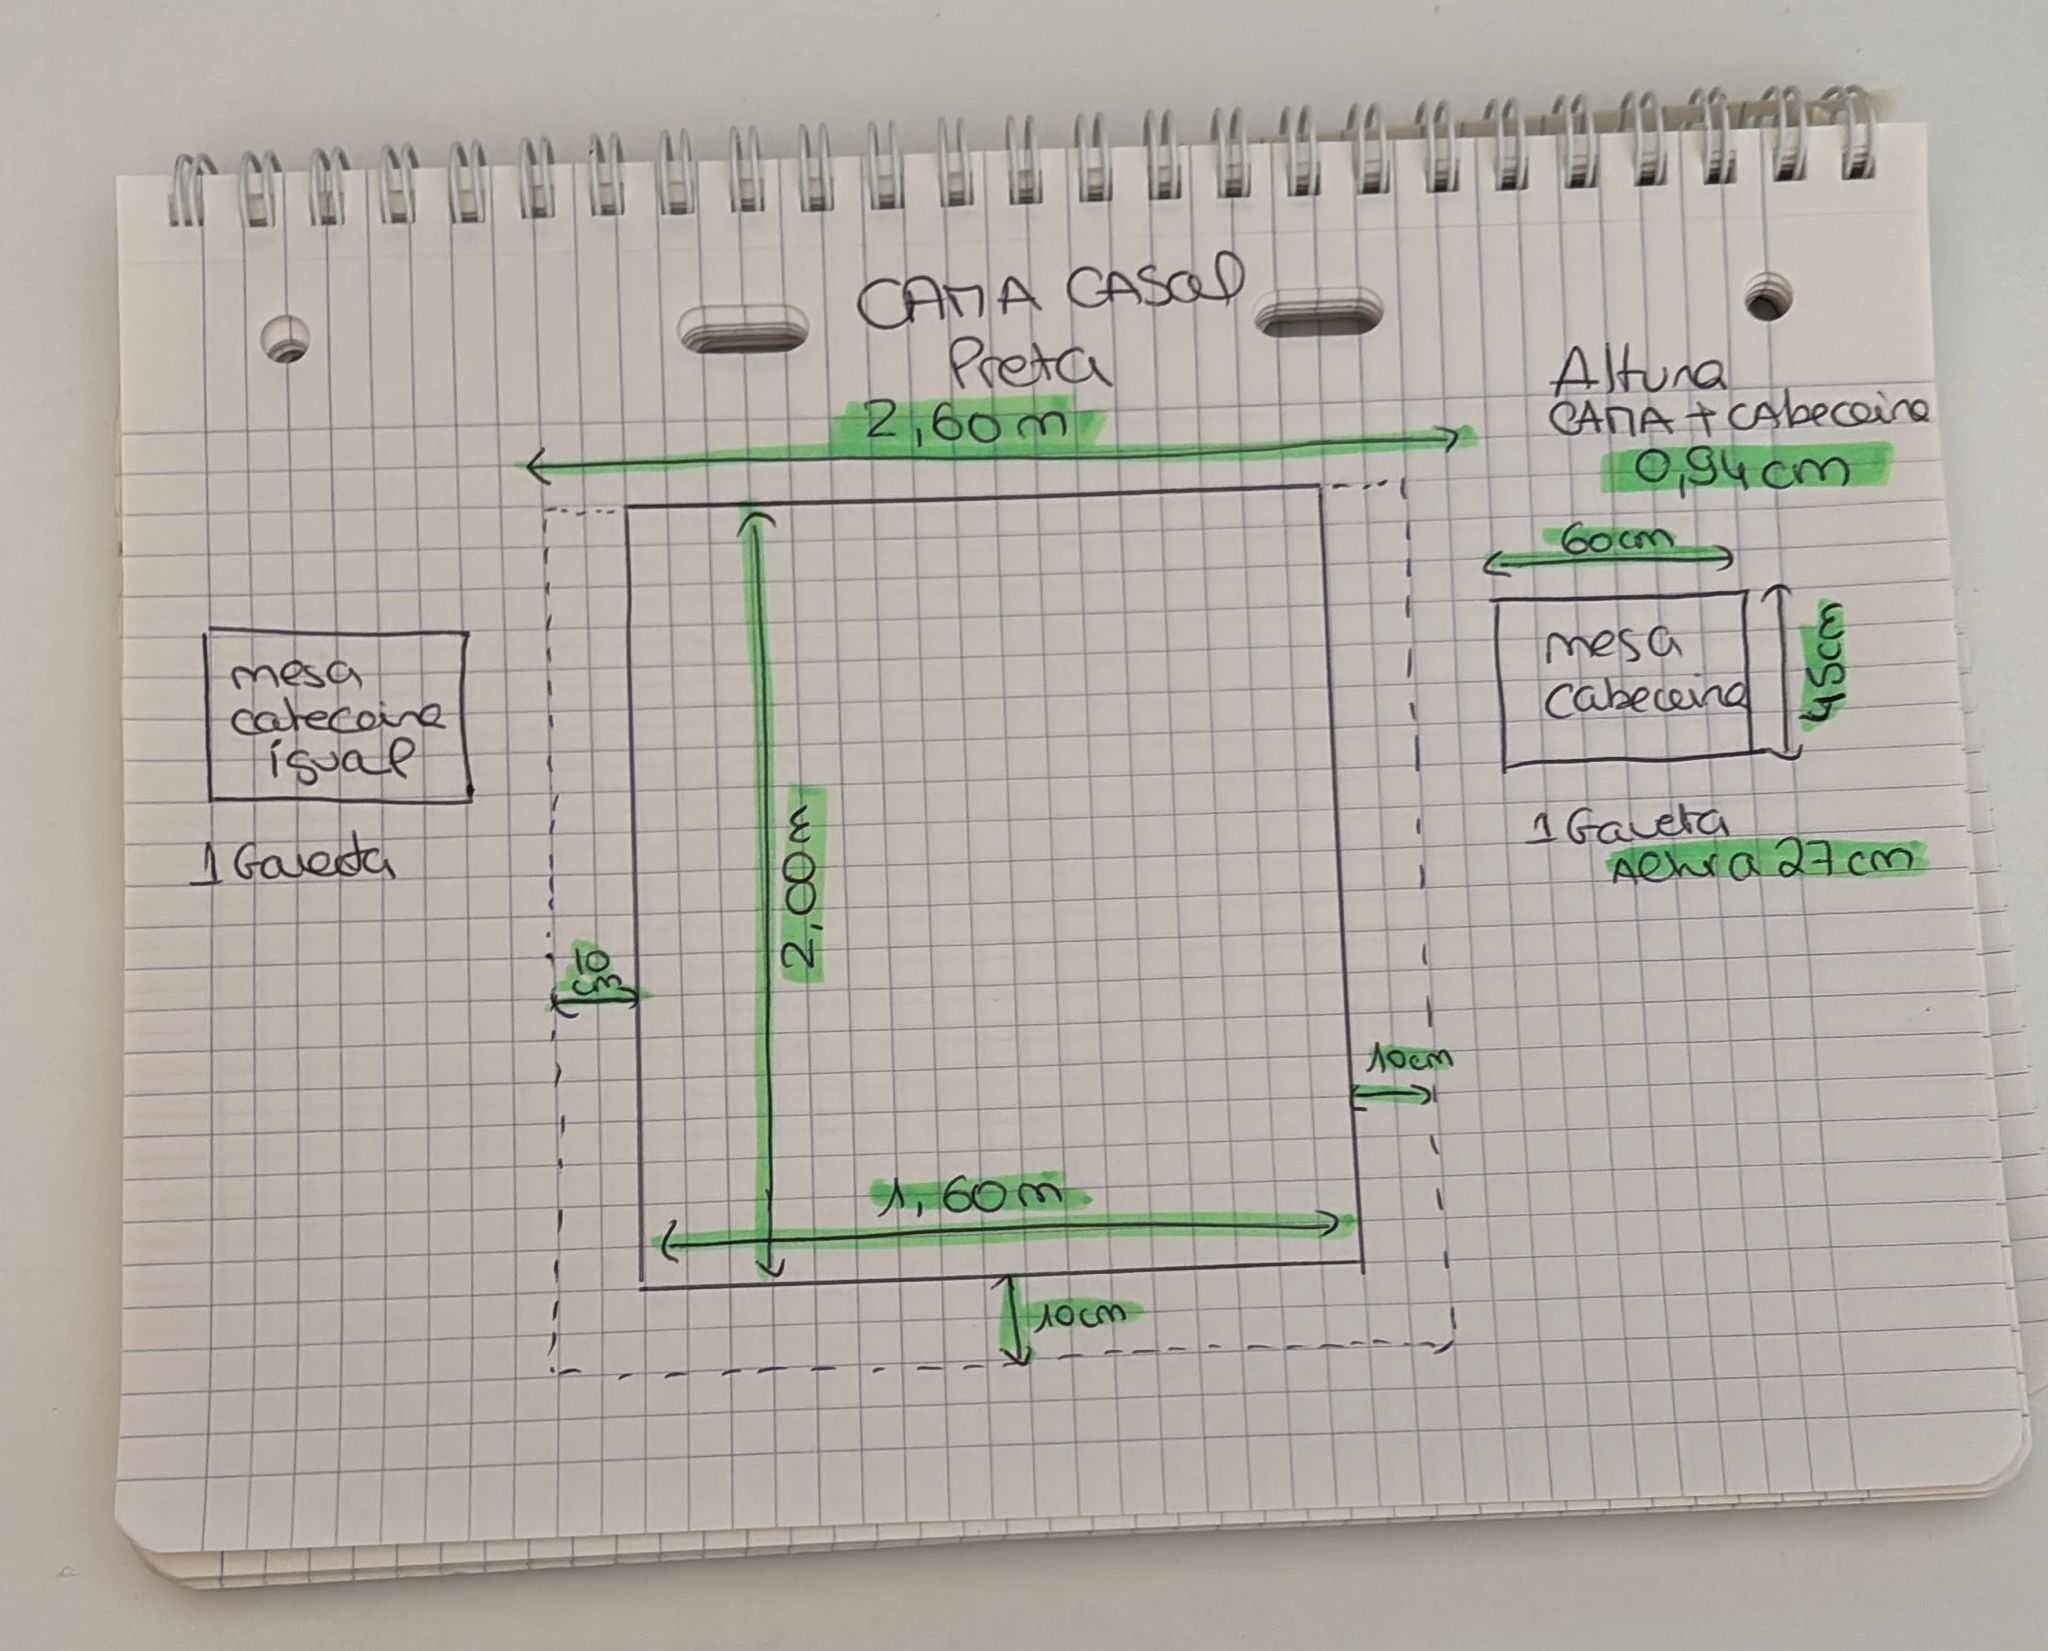 CAMA CASal
Preta
2,60 m
Altura
CAMA + CAbeceira
0,94 cm
60cm
mesa
cabeceira
45cm
1 Gaveta
Altura 27 cm
mesa
cabeceira
igual
1 Gaveta
2,00 m
10
cm
10cm
1,60 m
10cm